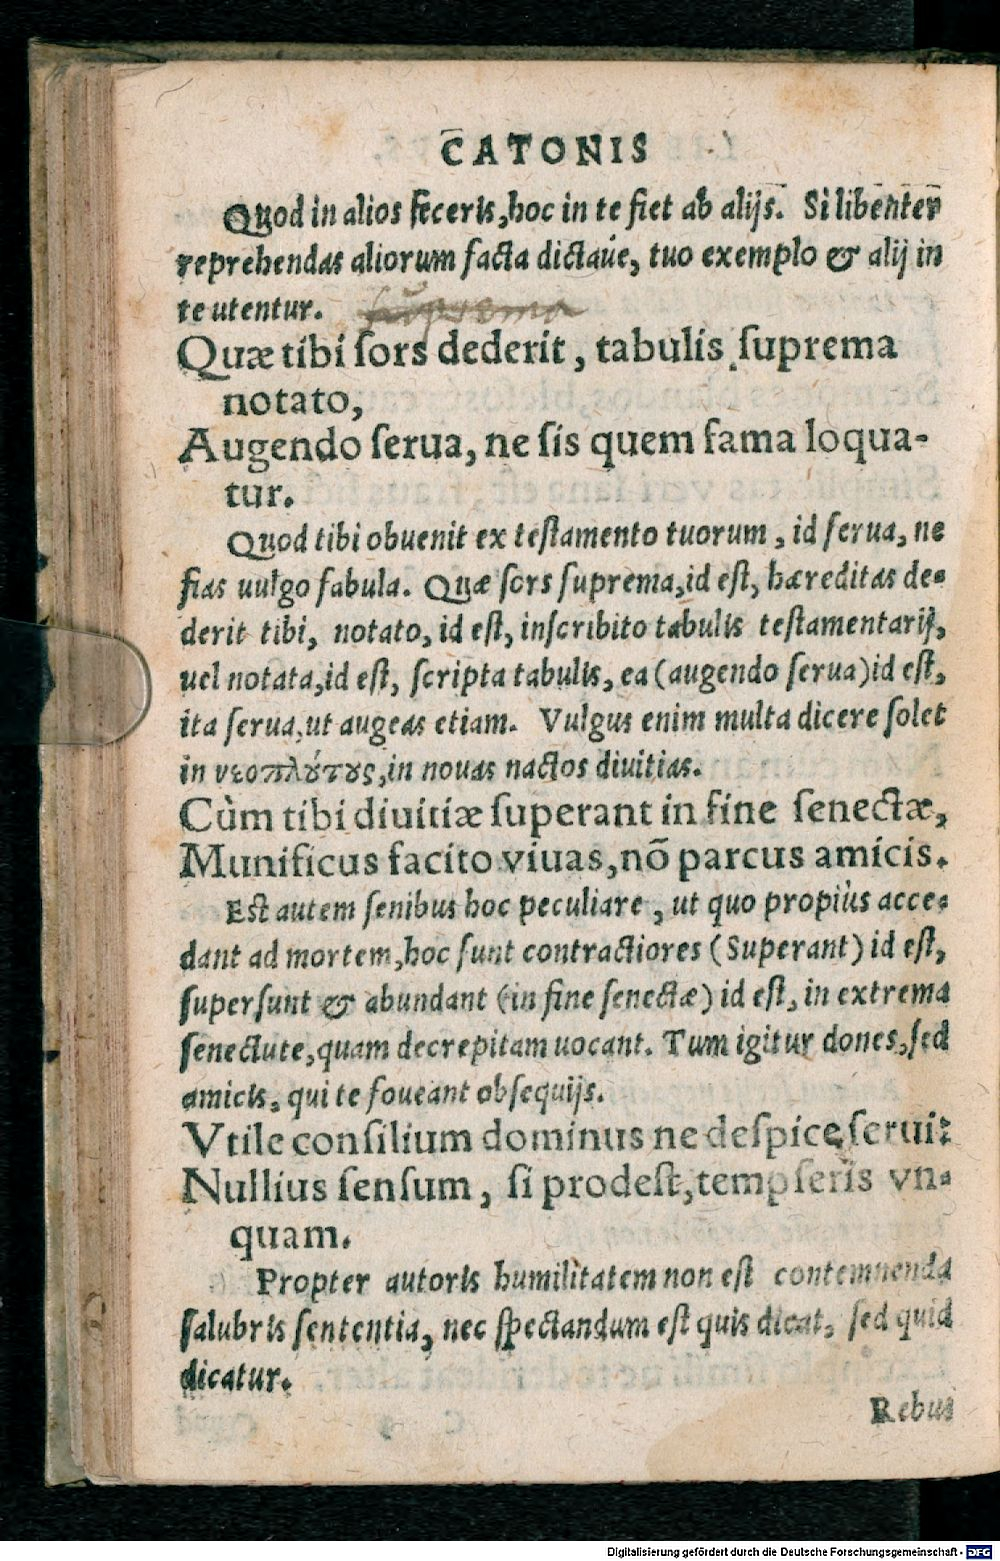 CATONIS
Quod in alios feceris, hoc in te fiet ab alijs. Si libenter
reprehendas aliorum facta dictaúe, tuo exemplo & alij in
te utentur. suprema
Quæ tibi ſors dederit, tabulis ſuprema
notato,
Augendo ſerua, ne ſis quem fama loqua-
tur.
Quod tibi obuenit ex teſtamento tuorum, id ſerua, ne
fias uulgo fabula. Quæ ſors ſuprema, id eſt, hæreditas de-
derit tibi, notato, id eſt, inſcribito tabulis teſtamentarijs,
uel notata, id eſt, ſcripta tabulis, ea (augendo ſerua) id eſt,
ita ſerua, ut augeas etiam. Vulgus enim multa dicere ſolet
in νεοπλούτους, in nouas nactos diuitias.
Cùm tibi diuitiæ ſuperant in fine ſenectæ,
Munificus facito viuas, nõ parcus amicis.
Eſt autem ſenibus hoc peculiare, ut quo propiùs acce-
dant ad mortem, hoc ſunt contractiores (Superant) id eſt,
ſuperſunt & abundant (in fine ſenectæ) id eſt, in extrema
ſenectute, quam decrepitam uocant. Tum igitur dones, ſed
amicis, qui te foueant obſequijs.
Vtile conſilium dominus ne deſpice ſerui:
Nullius ſenſum, ſi prodeſt, tempſeris vn-
quam.
Propter autoris humilitatem non eſt contemnenda
ſalubris ſententia, nec ſpectandum eſt quis dicat, ſed quid
dicatur.
Rebus
Digitalisierung gefördert durch die Deutsche Forschungsgemeinschaft - DFG